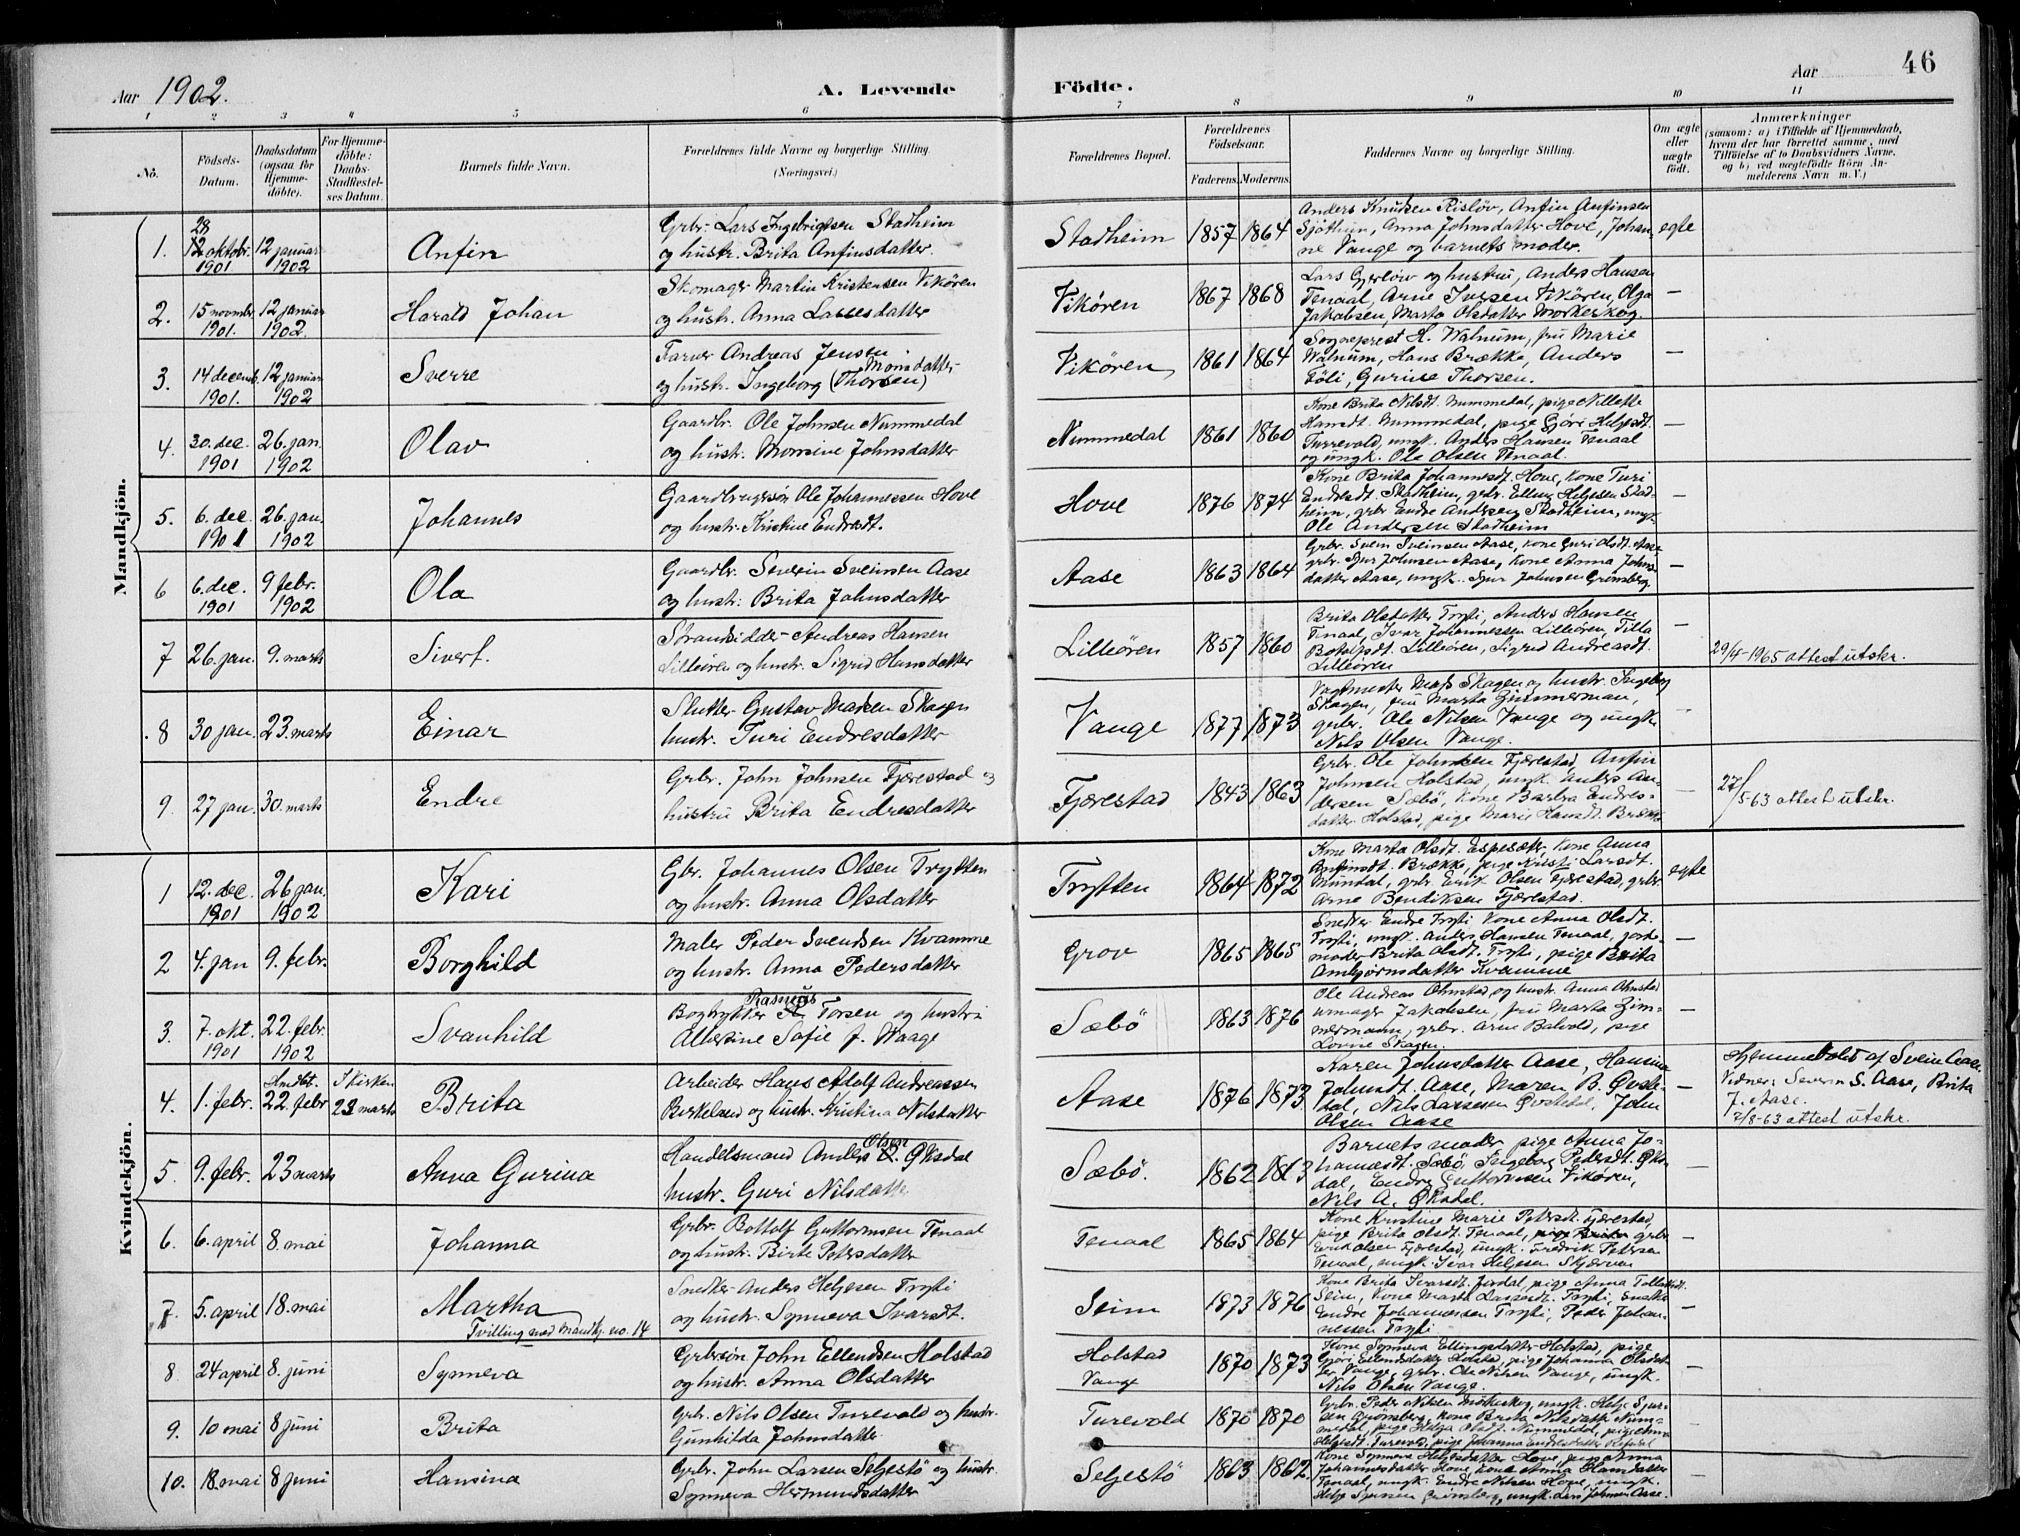 Aar 1902.
A. Levende
Födte.
Aar
46
1 2 3 4 5 6 7 8 9 10 11
No.
Födsels-
Datum.
Daabsdatum
(ogsaa for
Hjemme-
döbte).
For Hjemme-
döbte:
Daabs-
Stadfæstel-
ses Datum.
Barnets fulde Navn.
Forældrenes fulde Navne og borgerlige Stilling
(Næringsvei.)
Forældrenes Bopæl.
Forældrenes
Födselsaar.
Faderens. Moderens.
Faddernes Navne og borgerlige Stilling.
Om ægte
eller
uægte
födt.
Anmærkninger
(saasom: a) i Tilfælde af Hjemmedaab,
hvem der har forrettet samme, med
Tilföielse af to Daabsvidners Navne,
og b) ved uægtefödte Börn An-
melderens Navn m. V.)
Mandkjön.
1.
28
12 oktobr.
1901
12 januar
1902
Anfin
Grbr. Lars Ingebrigtsen Stadheim
og hustr. Brita Anfinsdatter.
Stadheim
1857 1864
Anders Knudsen Risløv, Anfin Anfinsen
Sjøthun, Anna Johnsdatter Hove, Johan
ne Vange og barnets moder.
egte
2.
15 novmbr.
1901.
12 januar
1902.
Harald Johan
Skomager Martin Kristensen Vikören
og hustr. Anna Lassesdatter
Vikören
1867 1868
Lars Gjerløw og hustru, Anders Hansen
Tenaal, Arne Iversen Vikören, Olga
Jakobsen, Marta Olsdatter Morkeskog.
—
3.
14 decemb.
1901.
12 januar
1902
Sverre
Farver Andreas Jensen
Monsdatter
og hustr. Ingeborg (Thorsen)
Vikören
1861 1864
Sogneprest H. Walnum, fru Marie
Walnum, Hans Brække, Anders
Föli, Gurine Thorsen.
—
4.
30. dec.
1901
26. jan.
1902
Olav
Gaardbr. Ole Johnsen Nummedal
og hustr. Monsine Johnsdatter
Nummedal
1861 1860
Kone Brita Nilsdt. Nummedal, pige Nillette
Hansdt. Nummedal, pige Gjøri Helgesdt.
Turrevold, ungk. Anders Hansen Tenaal
og ungk. Ole Olsen Tenaal.
—
5.
6. dec.
1901
26. jan.
1902
Johannes
Gaardbrugersøn Ole Johannessen Hove
og hustr. Kristine Endresdt.
Hove
1876 1874
Kone Brita Johannesdt. Hove, kone Turi
Endresdt. Stadheim, grbr. Elling Helgesen Stad-
heim, grbr. Endre Andersen Stadheim, ungk.
Ole Andersen Stadheim
—
6
6. dec.
1901
9 febr.
1902
Ola
Gaardbr. Severin Sveinsen Aase
og hustr: Brita Johnsdatter
Aase
1863 1864
Grbr. Svein Sveinsen Aase, kone Guri Olsdt. Aase
grbr. Sjur Johnsen Aase, kone Anna Johns-
datter Aase, ungk. Sjur Johnsen Grønsberg
—
7
26. jan.
9. marts
Sivert.
Strandsidder Andreas Hansen
Lilleören og hustr. Sigrid Hansdatter
Lilleören
1857 1860
Brita Olsdatter Tryti, Anders Hansen
Tenaal, Ivar Johannessen Lilleören, Tilla
Botolfsdt. Lilleören, Sigrid Andreasdt.
Lilleören
—
29/4-1965 attest utskr.
8
30 jan.
23. marts
Einar
Slutter Gustav Madsen Skagen
hustr. Turi Endresdatter
Vange
1877 1873
Vagtmester Mads Skagen og hustr. Ingeborg
Skagen, fru Marta Zimmerman,
grbr. Ole Nilsen Vange og ungk.
Nils Olsen Vange.
—
9.
27 jan.
30. marts
Endre
Grbr. John Johnsen Fjærestad og
hustru Brita Endresdatter
Fjærestad
1843 1863
Grbr. Ole Johnsen Fjærestad, Anfin
Johnsen Holstad, ungk. Anders An-
dersen Sæbø, Kone Barbra Endres-
datter Holstad, pige Marie Hansdt. Brække
—
27/5-63 attest utskr.
Kvindekjön.
1
12. dec.
1901
26 jan.
1902
Kari
Gbr. Johannes Olsen Trytten
og hustr. Anna Olsdatter
Trytten
1864 1872
Kone Marta Olsdt. Espesæter, Kone Anna
Anfinsdt. Brække, pige Kristi Larsdt.
Mundal, grbr. Erik Olsen Fjærestad, grbr.
Arne Bendiksen Fjærestad.
egte
2
4. jan
9. febr.
Borghild
Maler Peder Svendsen Kvamme
og hustr. Anna Pedersdatter
Grov
1865 1865
Snedker Endre Tryti Kone Anna Olsdt.
Tryti, ungk. Anders Hansen Tenaal, jorde-
moder Brita Olsdt. Tryti, pige Brita
Ambjørnsdatter Kvamme
—
3.
7. okt.
1901
22. febr.
1902
Svanhild
Rasmus
Bogtrykker Torsen og hustr.
Albertine Sofie f. Waage
Sæbö
1863 1876
Ole Andreas Ohnstad og hustr. Anna Ohnstad
urmager Jakobsen, fru Marta Zim-
mermann, grbr. Arne Bolvold, pige
Lovise Skagen.
4.
1. febr.
Hmdbt.
22. febr
I kirken
23 marts
Brita
Arbeider Hans Adolf Andreassen
Birkeland og hustr. Kristina Nilsdatter
Aase
1876 1873
Karen Johnsdatter Aase, Hansina
Johnsdt. Aase, Maren B. Øvste-
dal, Nils Lassesen Øvstedal, John
Olsen Aase
—
Hjemmedöbt af Svein Aase
Vidner: Severin S. Aase, Brita
J. Aase.
7/8-63 attest utskr.
5.
9. febr.
23 marts
Anna Gurina
Olsen
Handelsmand Anders O. Øksdal
hustr. Guri Nilsdatt.
Sæbö.
1862 1863
Barnets moder pige Anna Jo-
hannesdt. Sæbö, Ingeborg Pedersdt. Øks-
dal, Endre Guttormsen Vikören,
Nils A. Øksdal.
—
6.
6. april
8. mai
Johanna
Grbr. Bottolf Guttormsen Tenaal
og hustr. Birte Petersdatter
Tenaal
1865 1864
Kone Kristine Marie Petersdt. Fjærestad,
pige Brita Olsdt. Tenaal, grbr.
Erik Olsen Fjærestad, ungk. Fredrik Petersen
Tenaal, ungk. Ivar Helgesen Skjerven
—
7
5. april
18. mai
Martha
Tvilling med Mandkj. no. 14
Snedker Anders Helgesen Tryti
og hustr. Synneva Ivarsdt.
Seim
1873 1876
Kone Brita Ivarsdt. Jordal, pige Anna Tollefsdt.
Seim, Kone Marta Larsdt. Tryti, Enkem.
Endre Johannesen Tryti, Peder Johan-
nessen Tryti
—
8.
24 april
8. juni
Synneva
Grbrsön John Ellendsen Holstad
og hustr. Anna Olsdatter
Holstad
Vange
1870 1873
Kone Synneva Ellingsdatter Holstad, pige
Gjöri Ellendsdatter Holstad, pige Johanna Olsdat-
ter Vange, grbr. Ole Nilsen Vange, ungk.
Nils Olsen Vange.
—
9.
10 mai
8 juni
Brita
Grbr. Nils Olsen Turevold og hustr.
Gunhilda Johnsdatter
Turevold
1870 1870
Grbr. Peder Nilsen Mörkeskog, ungk. Helje Sjur-
sen Grønsberg, kone Brita Nilsdatter Num-
medal, pige Helga Olsdt. Nummedal, pige Anna
Helgesdt. Turevold, pige Johanna Endresdatter
—
10.
18. mai
8 juni
Hansina
Grbr. John Larsen Seljestö og hustr.
Synneva Hermundsdatter
Seljestö
1863 1862
Kone Synneva Helgesdatter Hove, pige Anna
Johannesdatter Hove, kone Anna Hansdatter
Tenaal, ungk. Endre Nilsen Hove, ungk.
Helje Sjursen Grønsberg, ungk. Lars Johnsen Aase.
—